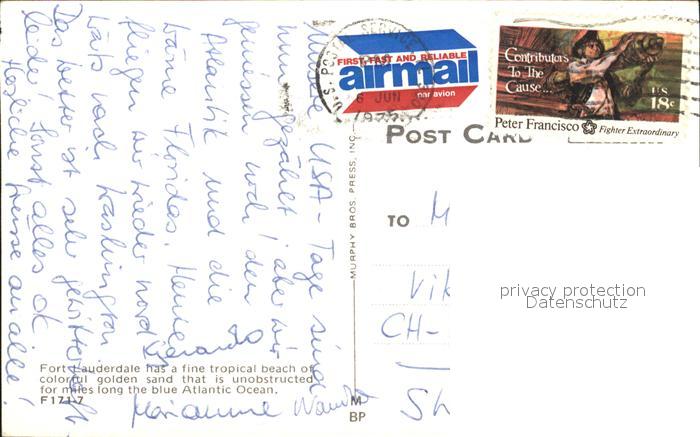 Unsere USA-Tage sind
nun gezählt! aber wir
geniessen noch den
Atlantik und die
Wärme Floridas. Heute
fliegen wir wieder nord-
wärts nach Washington.
Das Wetter ist sehr gewitterhaft
leider sonst alles ok.
Herzliche Grüsse an alle!
Marianne
U.S. POSTAL SERVICE
6 JUN
FIRST, FAST AND RELIABLE
airmail
par avion
Contributors
To The
Cause...
US
18c
Peter Francisco Fighter Extraordinary
POST CARD
MURPHY BROS. PRESS, INC.
TO M
Vik
CH-
Sh
privacy protection
Datenschutz
Fort Lauderdale has a fine tropical beach of
colorful golden sand that is unobstructed
for miles long the blue Atlantic Ocean.
F171-7
M
BP